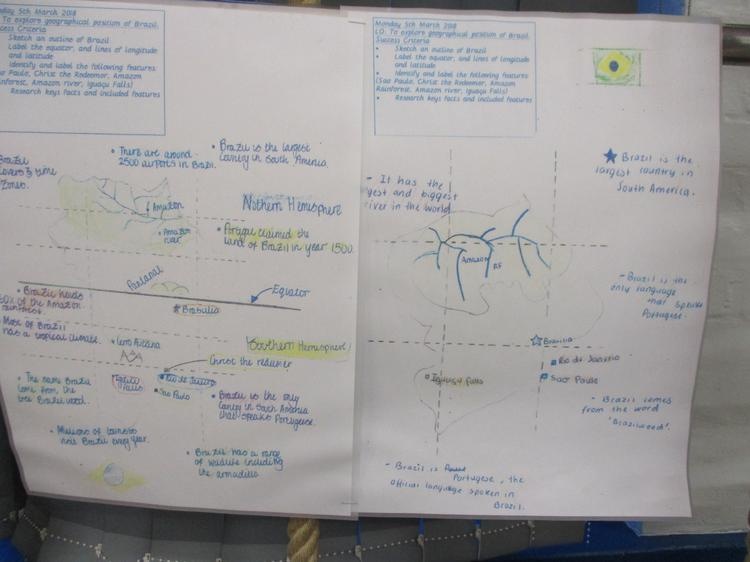 nday 5th March 2018
To explore geographical position of Brazil.
ccess Criteria
Sketch an outline of Brazil
Label the equator, and lines of longitude
and latitude
Identify and label the following features:
ao Paulo, Christ the Redeemor, Amazon
inforest, Amazon river, Iguaçu Falls)
Research keys facts and included features
Brazil
covers 3 time
Zones.
• There are around
2500 airports in Brazil.
• Brazil is the largest
contry in South America.
Amazon
Amazon
river
Nothern Hemisphere
• Portugal claimed the
land of Brazil in year 1500.
Pantanal
Equator
Brasilia
• Brazil
of the Amazon
rainforest
Most of Brazil
has a tropical climate.
Southern Hemisphere
Christ the redemer
Rio de Janeiro
Sao Paulo
• The name Brazil
come from the
tree Brazil wood.
• Brazil is the only
contry in South America
that speaks Portugese.
• Millions of tourists
visit Brazil every year.
• Brazil has a range
of wildlife including
the armadillo
Monday 5th March 2018
LO: To explore geographical position of Brazil.
Success Criteria
• Sketch an outline of Brazil
• Label the equator, and lines of longitude
and latitude
• Identify and label the following features:
(Sao Paulo, Christ the Redeemor, Amazon
Rainforest, Amazon river, Iguaçu Falls)
• Research keys facts and included features
Brazil is the
largest country in
South America.
- It has the
gest and biggest
river in the world
Amazon
RF
- Brazil is the
only language
that speaks
Portugese.
Brasilia
Rio de Janeirio
Sao Paulo
Iguaçu falls
- Brazil comes
from the word
'Brazilwood'.
- Brazil is
Portugese, the
official language spoken in
Brazil.